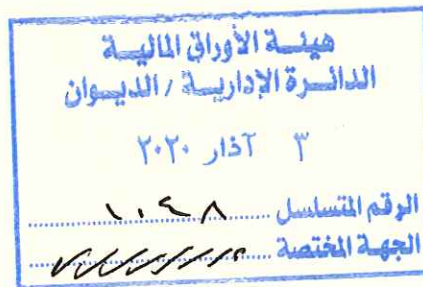 هيئة الأوراق المالية
الدائرة الإدارية / الديوان
٣ آذار ٢٠٢٠
الرقم المتسلسل ١٠٤٨
الجهة المختصة